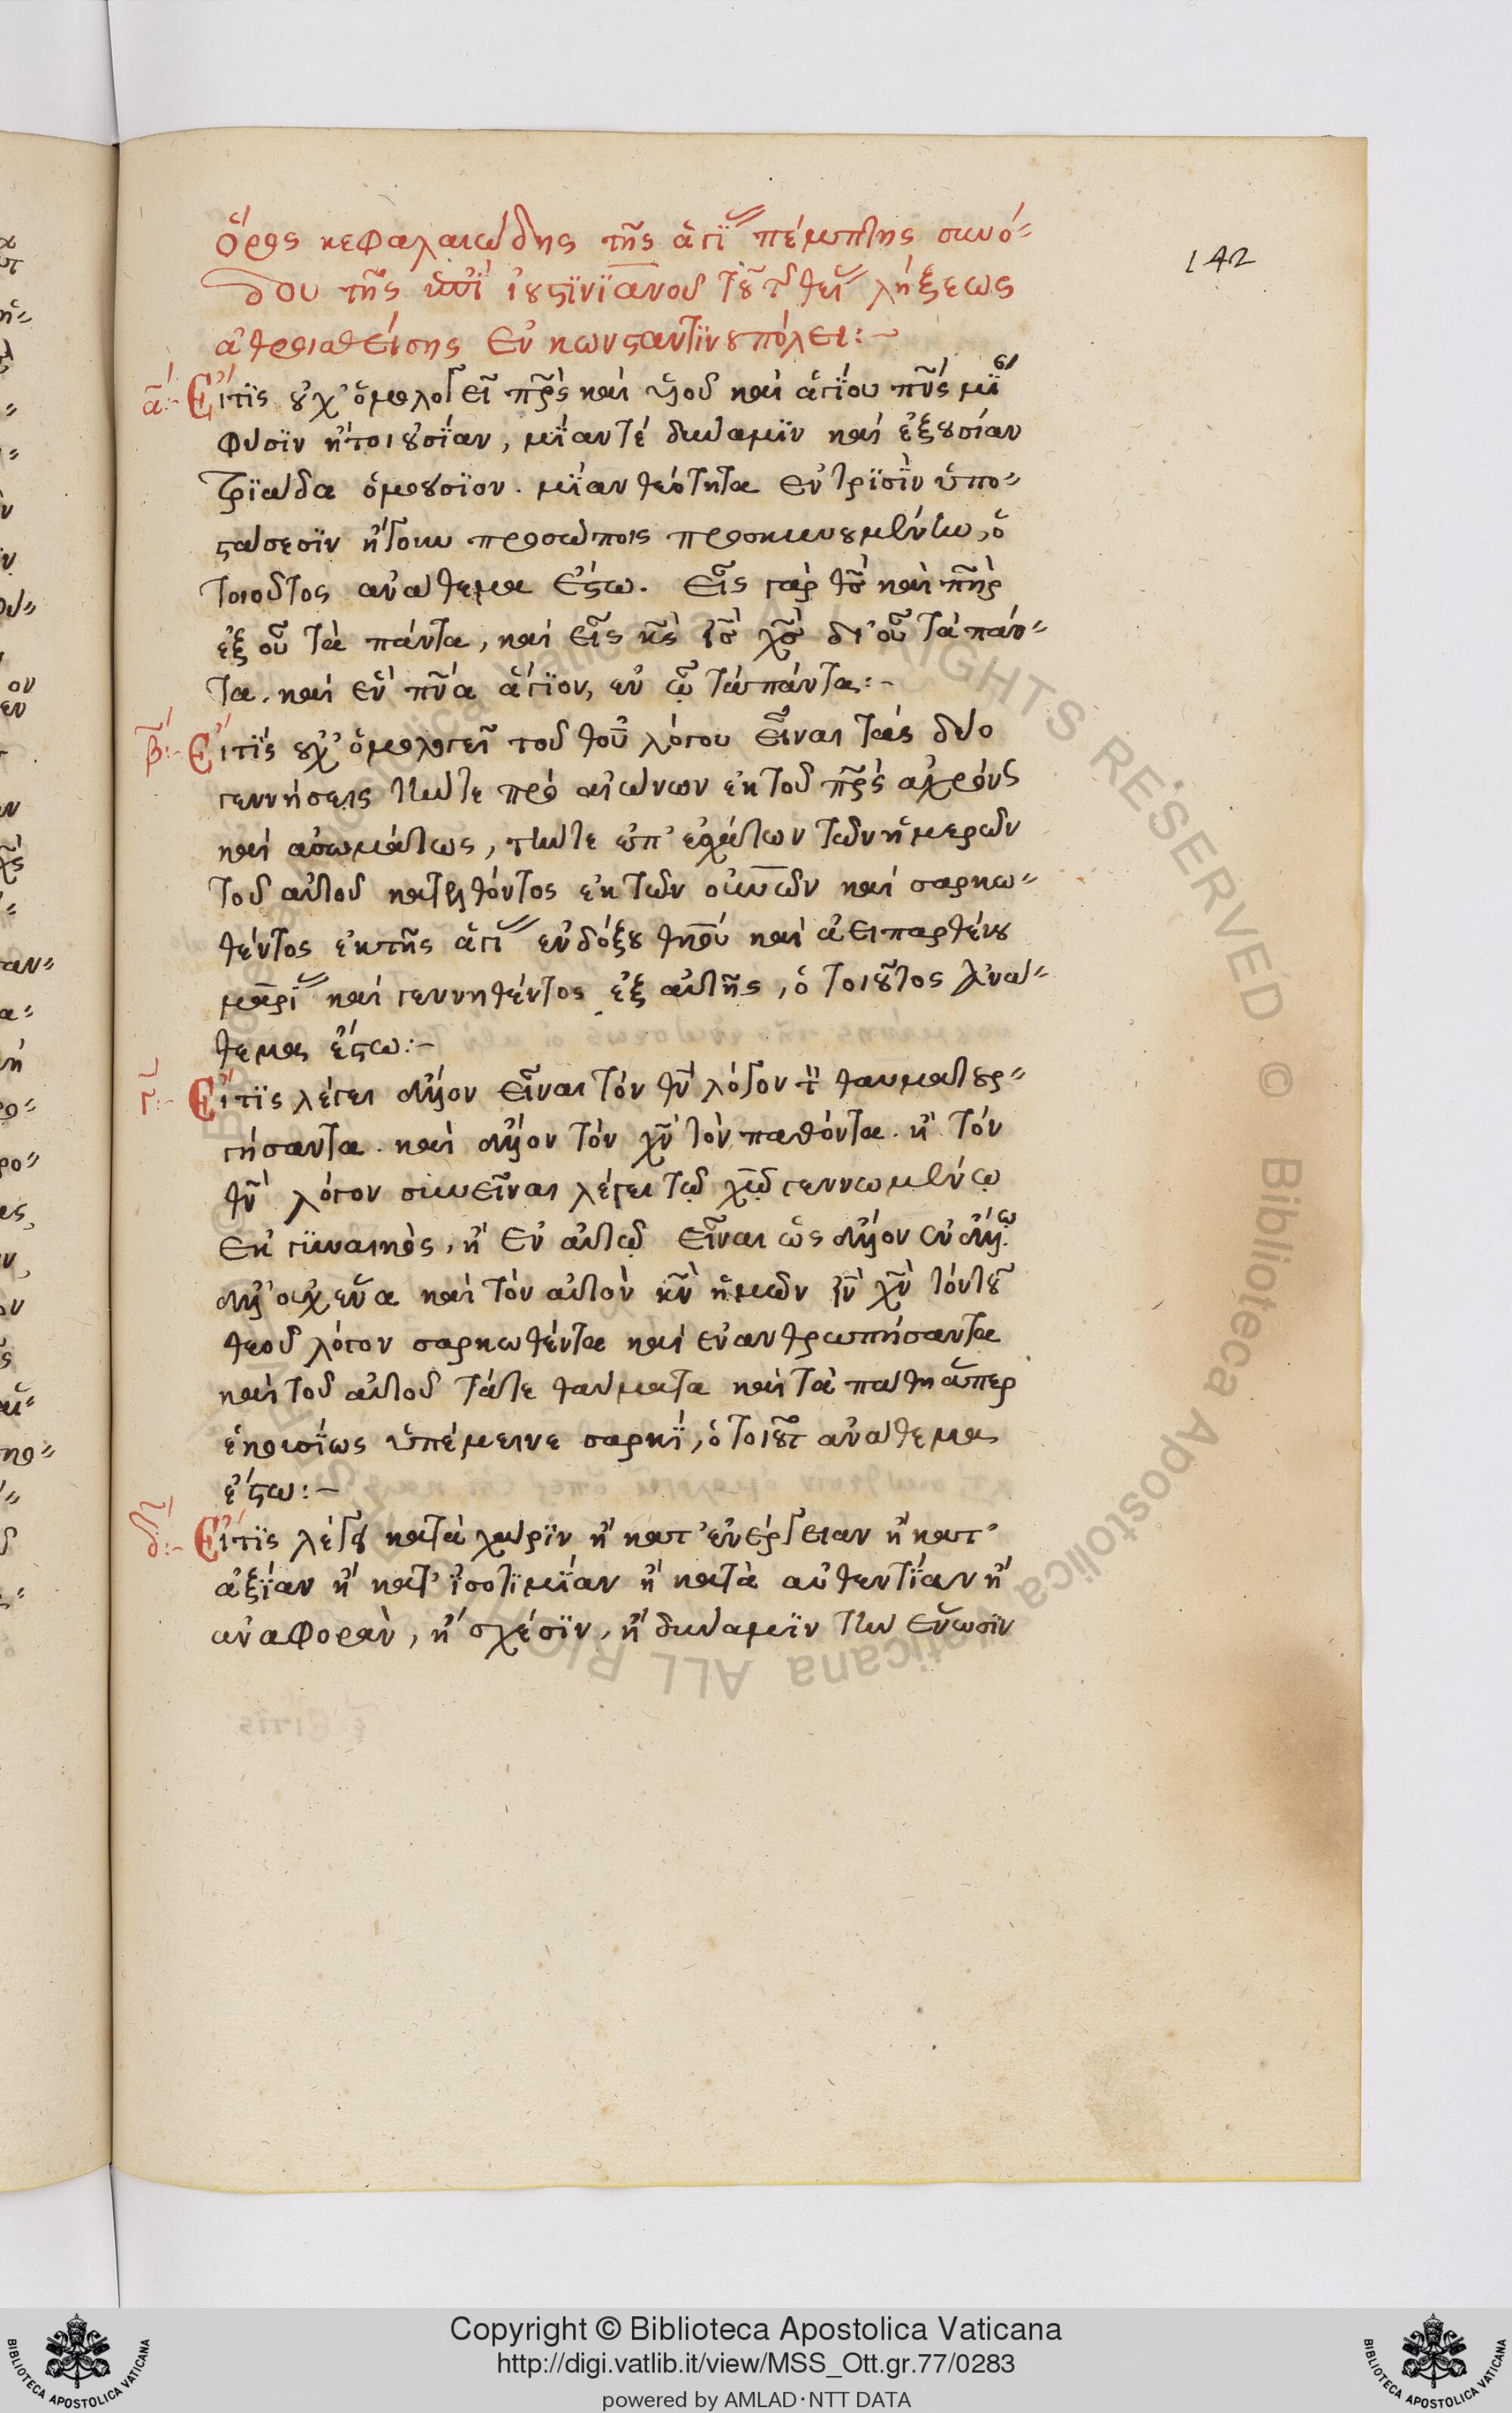 142
ὅρος κεφαλαιώδης τῆς ἁγί πέμπτης συνό-
δου τῆς ἐπὶ ἰουστινιανοῦ τοῦ τ θεί λήξεως
ἀθροισθείσης ἐν κωνσταντινουπόλει:~
α:- Εἴτις οὐχ ὁμολογεῖ πρς καὶ υἱοῦ καὶ ἁγίου πνς μί
φύσιν ἤτοι οὐσίαν, μίαν τὲ δύναμιν καὶ ἐξουσίαν
τριάδα ὁμοούσιον. μίαν θεότητα ἐν τρισὶν ὑπο-
στάσεσιν ἤγουν προσώποις προσκυνουμένην, ὁ
τοιοῦτος ἀνάθεμα ἔστω. εἷς γὰρ θς καὶ πηρ
ἐξ οὗ τὰ πάντα, καὶ εἷς κς ις χς δι' οὗ τὰ πάν-
τα. καὶ ἓν πνα ἅγιον, ἐν ᾧ τὰ πάντα:-
β:- Εἴτις οὐχ ὁμολογεῖ τοῦ θου λόγου εἶναι τὰς δύο
γεννήσεις τήν τε πρὸ αἰώνων ἐκ τοῦ πρς ἀχρόνως
καὶ ἀσωμάτως, τήν τε ἐπ' ἐσχάτων τῶν ἡμερῶν
τοῦ αὐτοῦ κατελθόντος ἐκ τῶν ουνῶν καὶ σαρκω-
θέντος ἐκ τῆς ἁγί ἐνδόξου θκου καὶ ἀειπαρθένου
μαρί καὶ γεννηθέντος ἐξ αὐτῆς, ὁ τοιοῦτος ἀνά-
θεμα ἔστω:-
γ:- Εἴτις λέγει ἄλλον εἶναι τὸν θυ λόγον τ θαυματουρ-
γήσαντα. καὶ ἄλλον τὸν χν τὸν παθόντα. ἢ τὸν
θν λόγον συνεῖναι λέγει τῷ χω γεννωμένῳ
ἐκ γυναικὸς, ἢ ἐν αὐτῷ εἶναι ὡς ἄλλον ἐν ἄλλῳ.
ἀλλ' οὐχ ἕνα καὶ τὸν αὐτὸν κν ἡμῶν ιν χν τὸν τοῦ
θεοῦ λόγον σαρκωθέντα καὶ ἐνανθρωπήσαντα
καὶ τοῦ αὐτοῦ τά τε θαύματα καὶ τὰ πάθη ἅπερ
ἑκουσίως ὑπέμεινε σαρκί, ὁ τοιοῦτ ἀνάθεμα
ἔστω:-
δ:- Εἴτις λέγει κατὰ χάριν ἢ κατ' ἐνέργειαν ἢ κατ'
ἀξίαν ἢ κατ' ἰσοτιμίαν ἢ κατὰ αὐθεντίαν ἢ
ἀναφορὰν, ἢ σχέσιν, ἢ δύναμιν τὴν ἕνωσιν
Copyright © Biblioteca Apostolica Vaticana
http://digi.vatlib.it/view/MSS_Ott.gr.77/0283
powered by AMLAD·NTT DATA
BIBLIOTECA APOSTOLICA VATICANA
BIBLIOTECA APOSTOLICA VATICANA